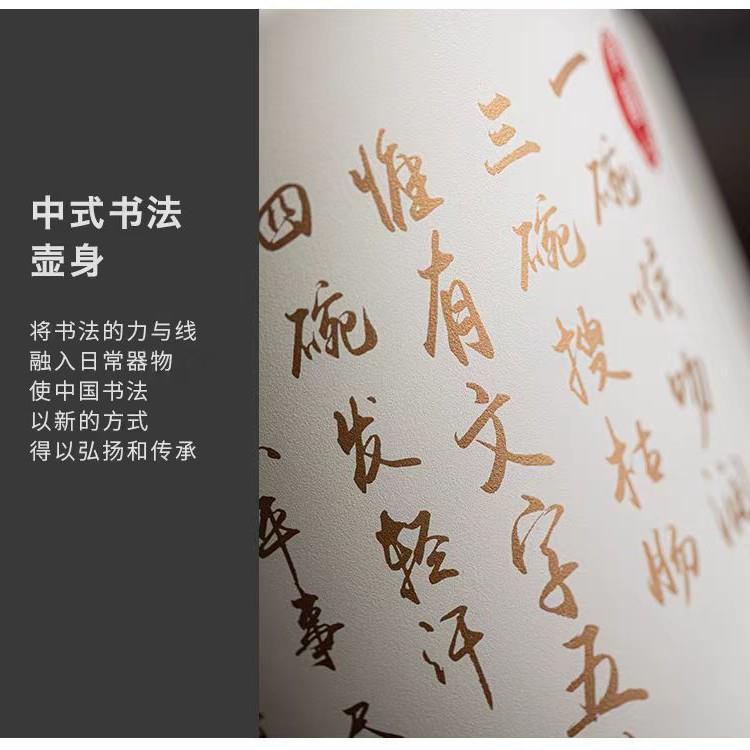 中式书法
壶身
将书法的力与线
融入日常器物
使中国书法
以新的方式
得以弘扬和传承
一碗喉吻润
三碗搜枯肠
惟有文字五
四碗发轻汗
平事